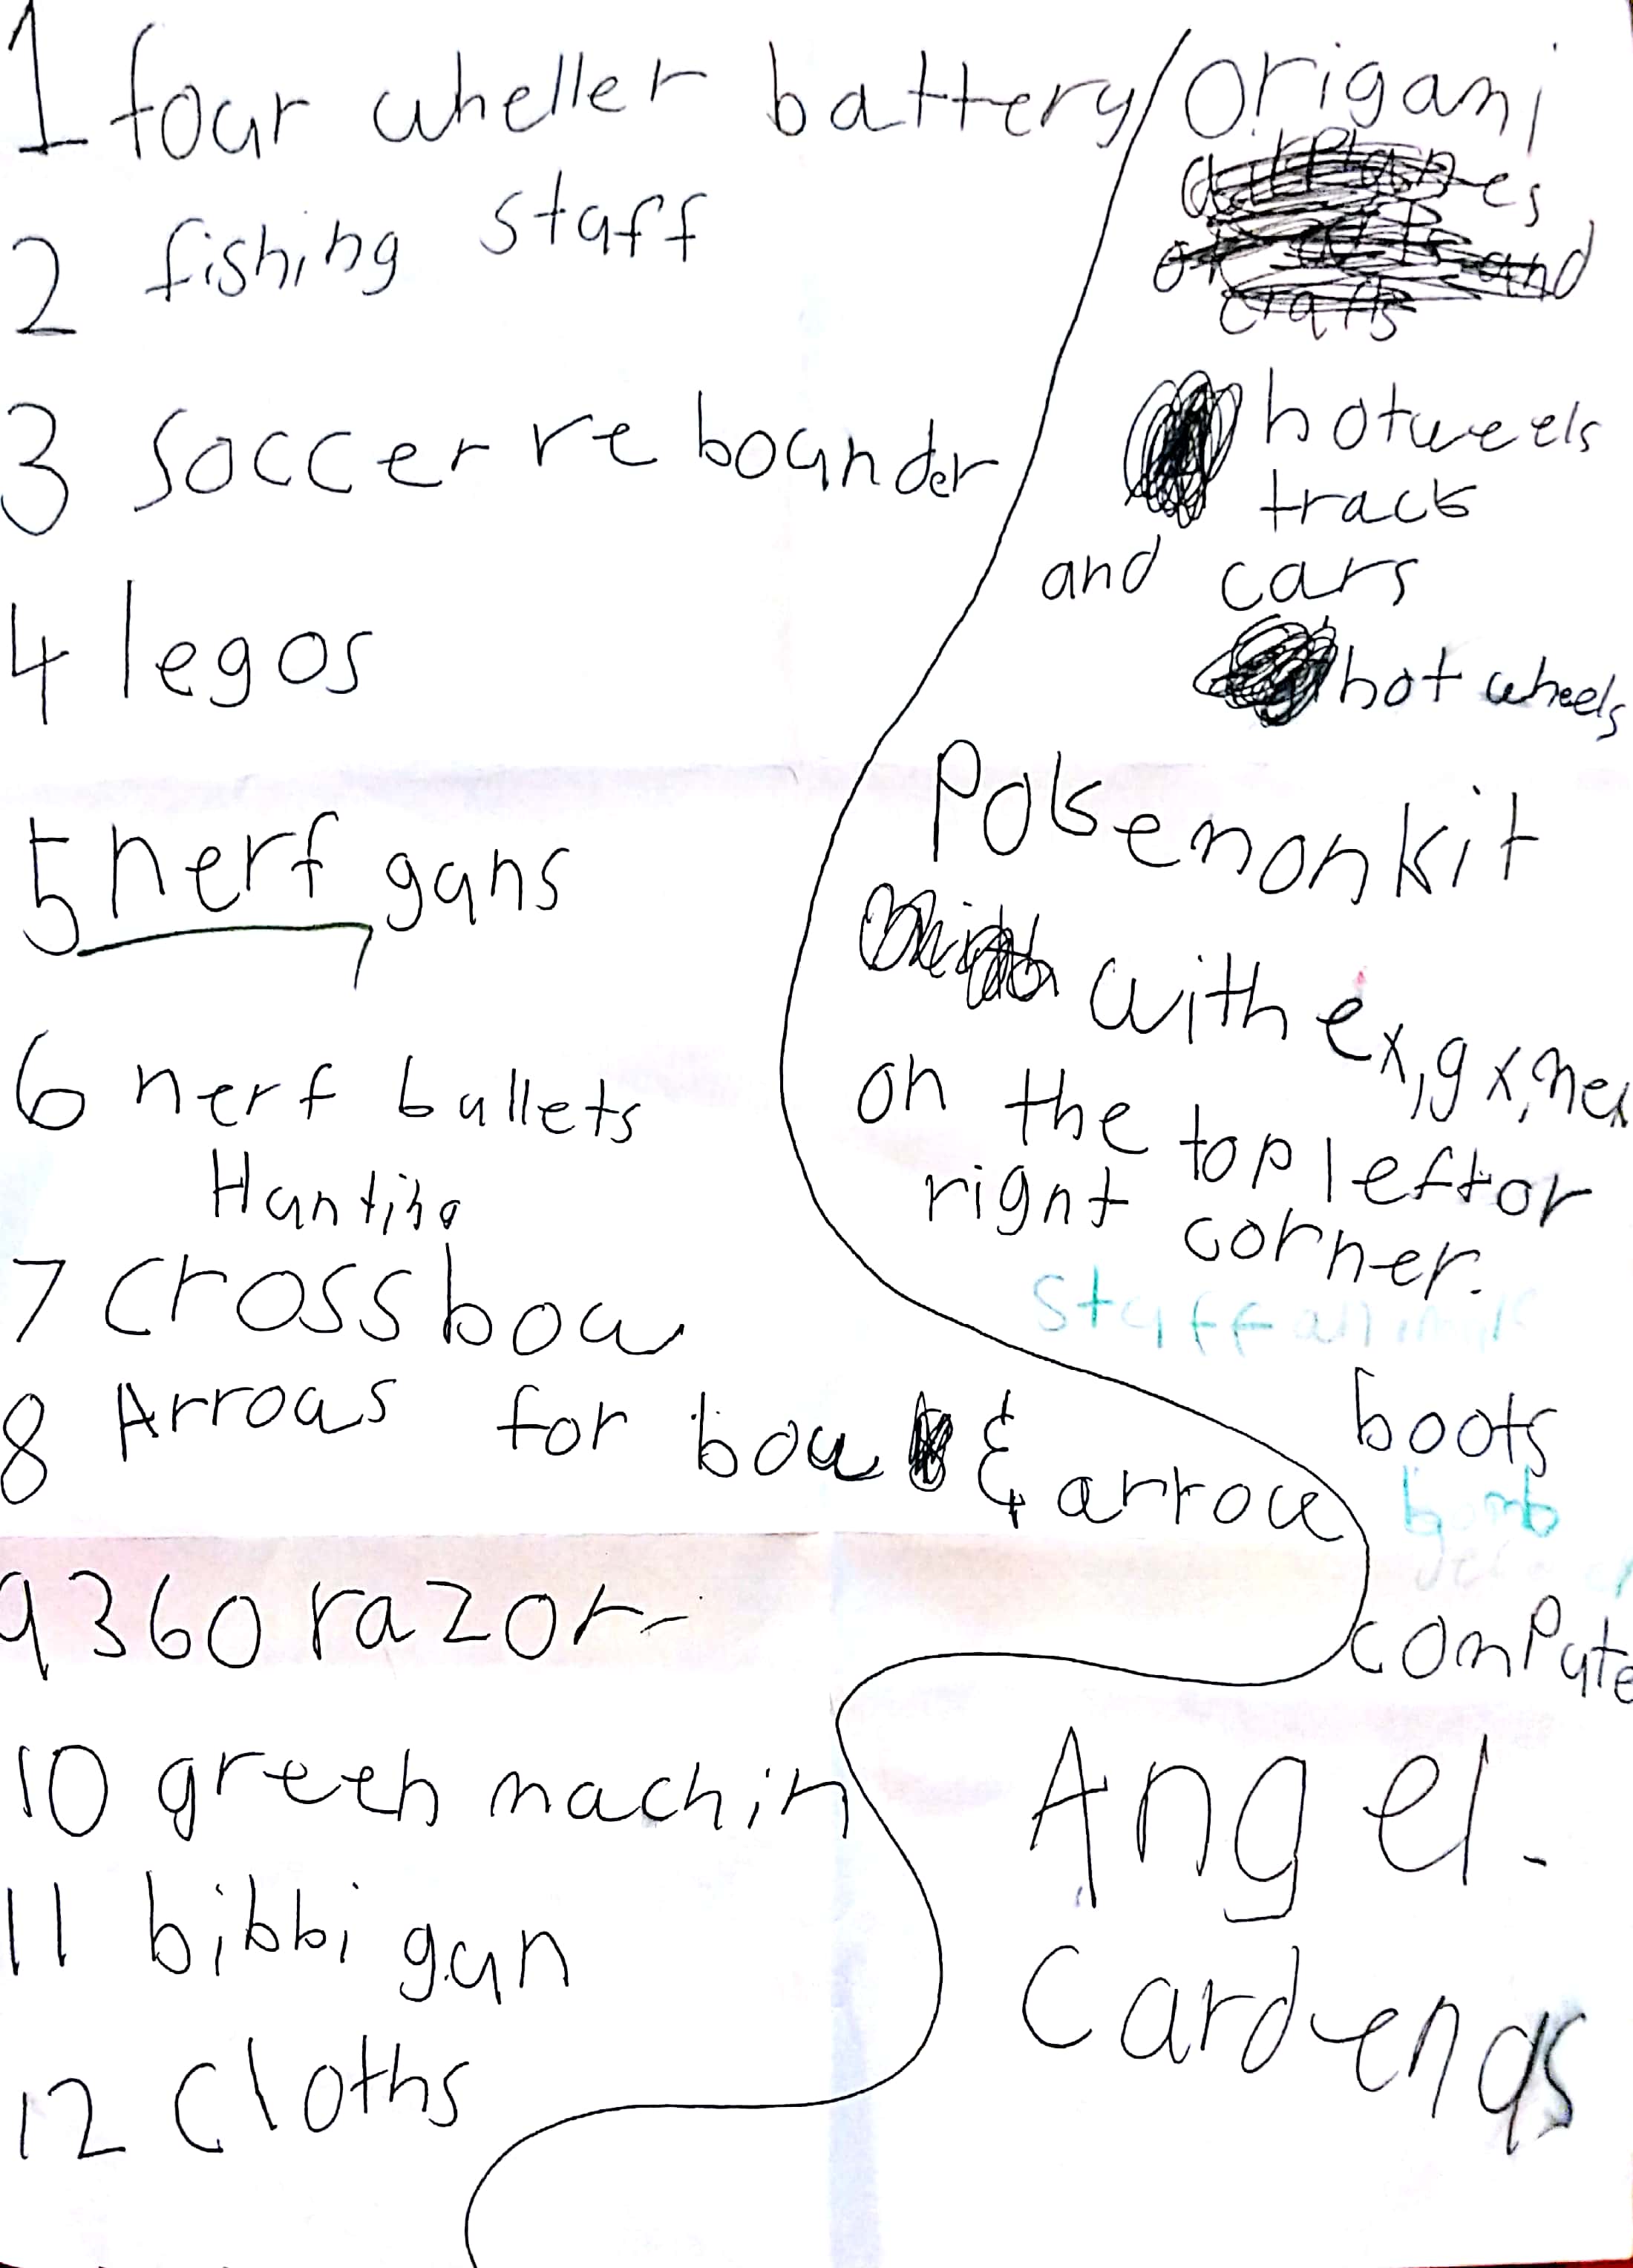 1 four wheller battery
2 fishing stuff
3 soccer rebounder
4 legos
5 nerf guns
6 nerf bullets
Hunting
7 crossbow
8 Arrows for bow & arrow
9 360 razor
10 green machin
11 bibbi gun
12 cloths
origami
hotweels
track
and cars
hot wheels
Pokemon kit
with ex, gx, mex
on the top left or
right corner.
stuff animals
boots
bomb
compute
Angel.
Cardenas